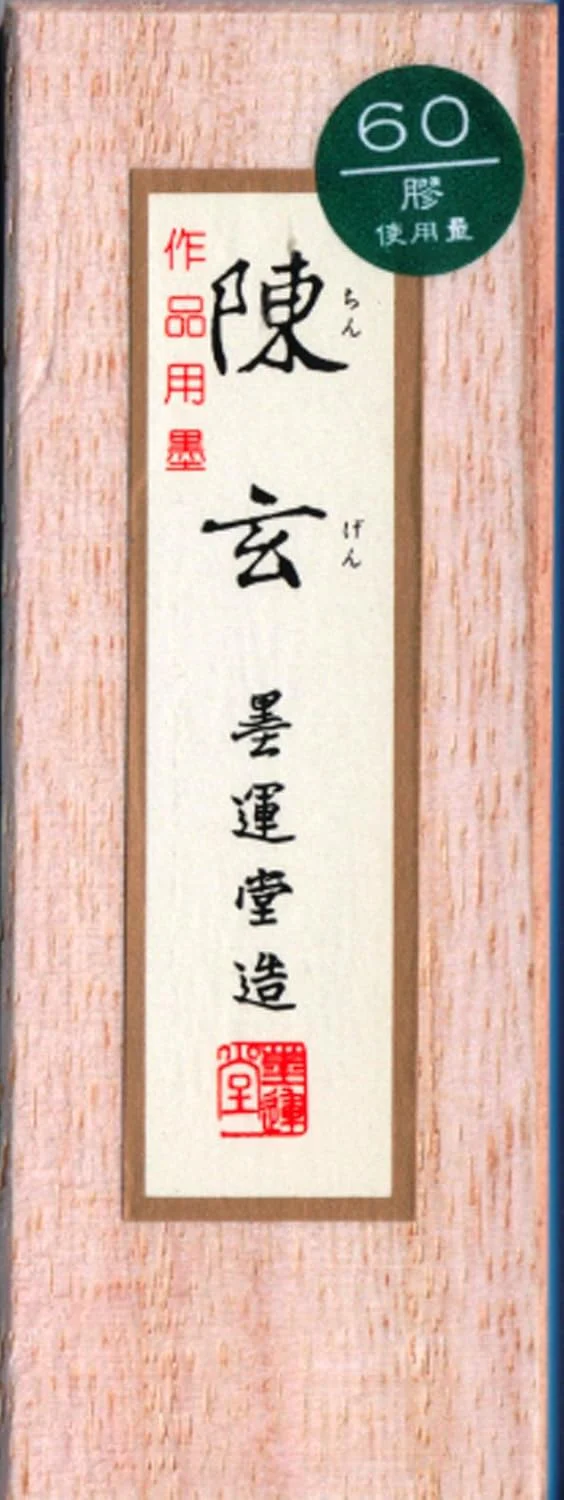 60
膠
使用量
陳玄
ちん
げん
作品用墨
墨運堂造
墨運堂